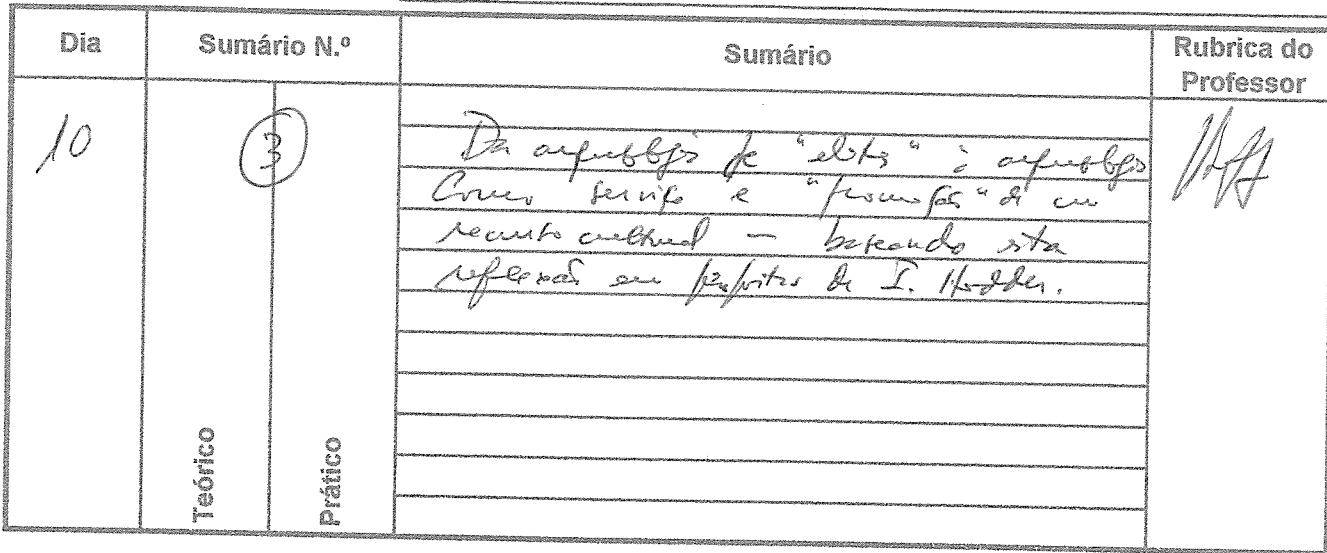 Dia
Sumário N.º
Sumário
Rubrica do
Professor
10
3
Da arqueologia de "elites" à arqueologia
Como serviço e "promoção" de um
recurso cultural — baseando esta
reflexão em de I. Hodder.
Teórico
Prático